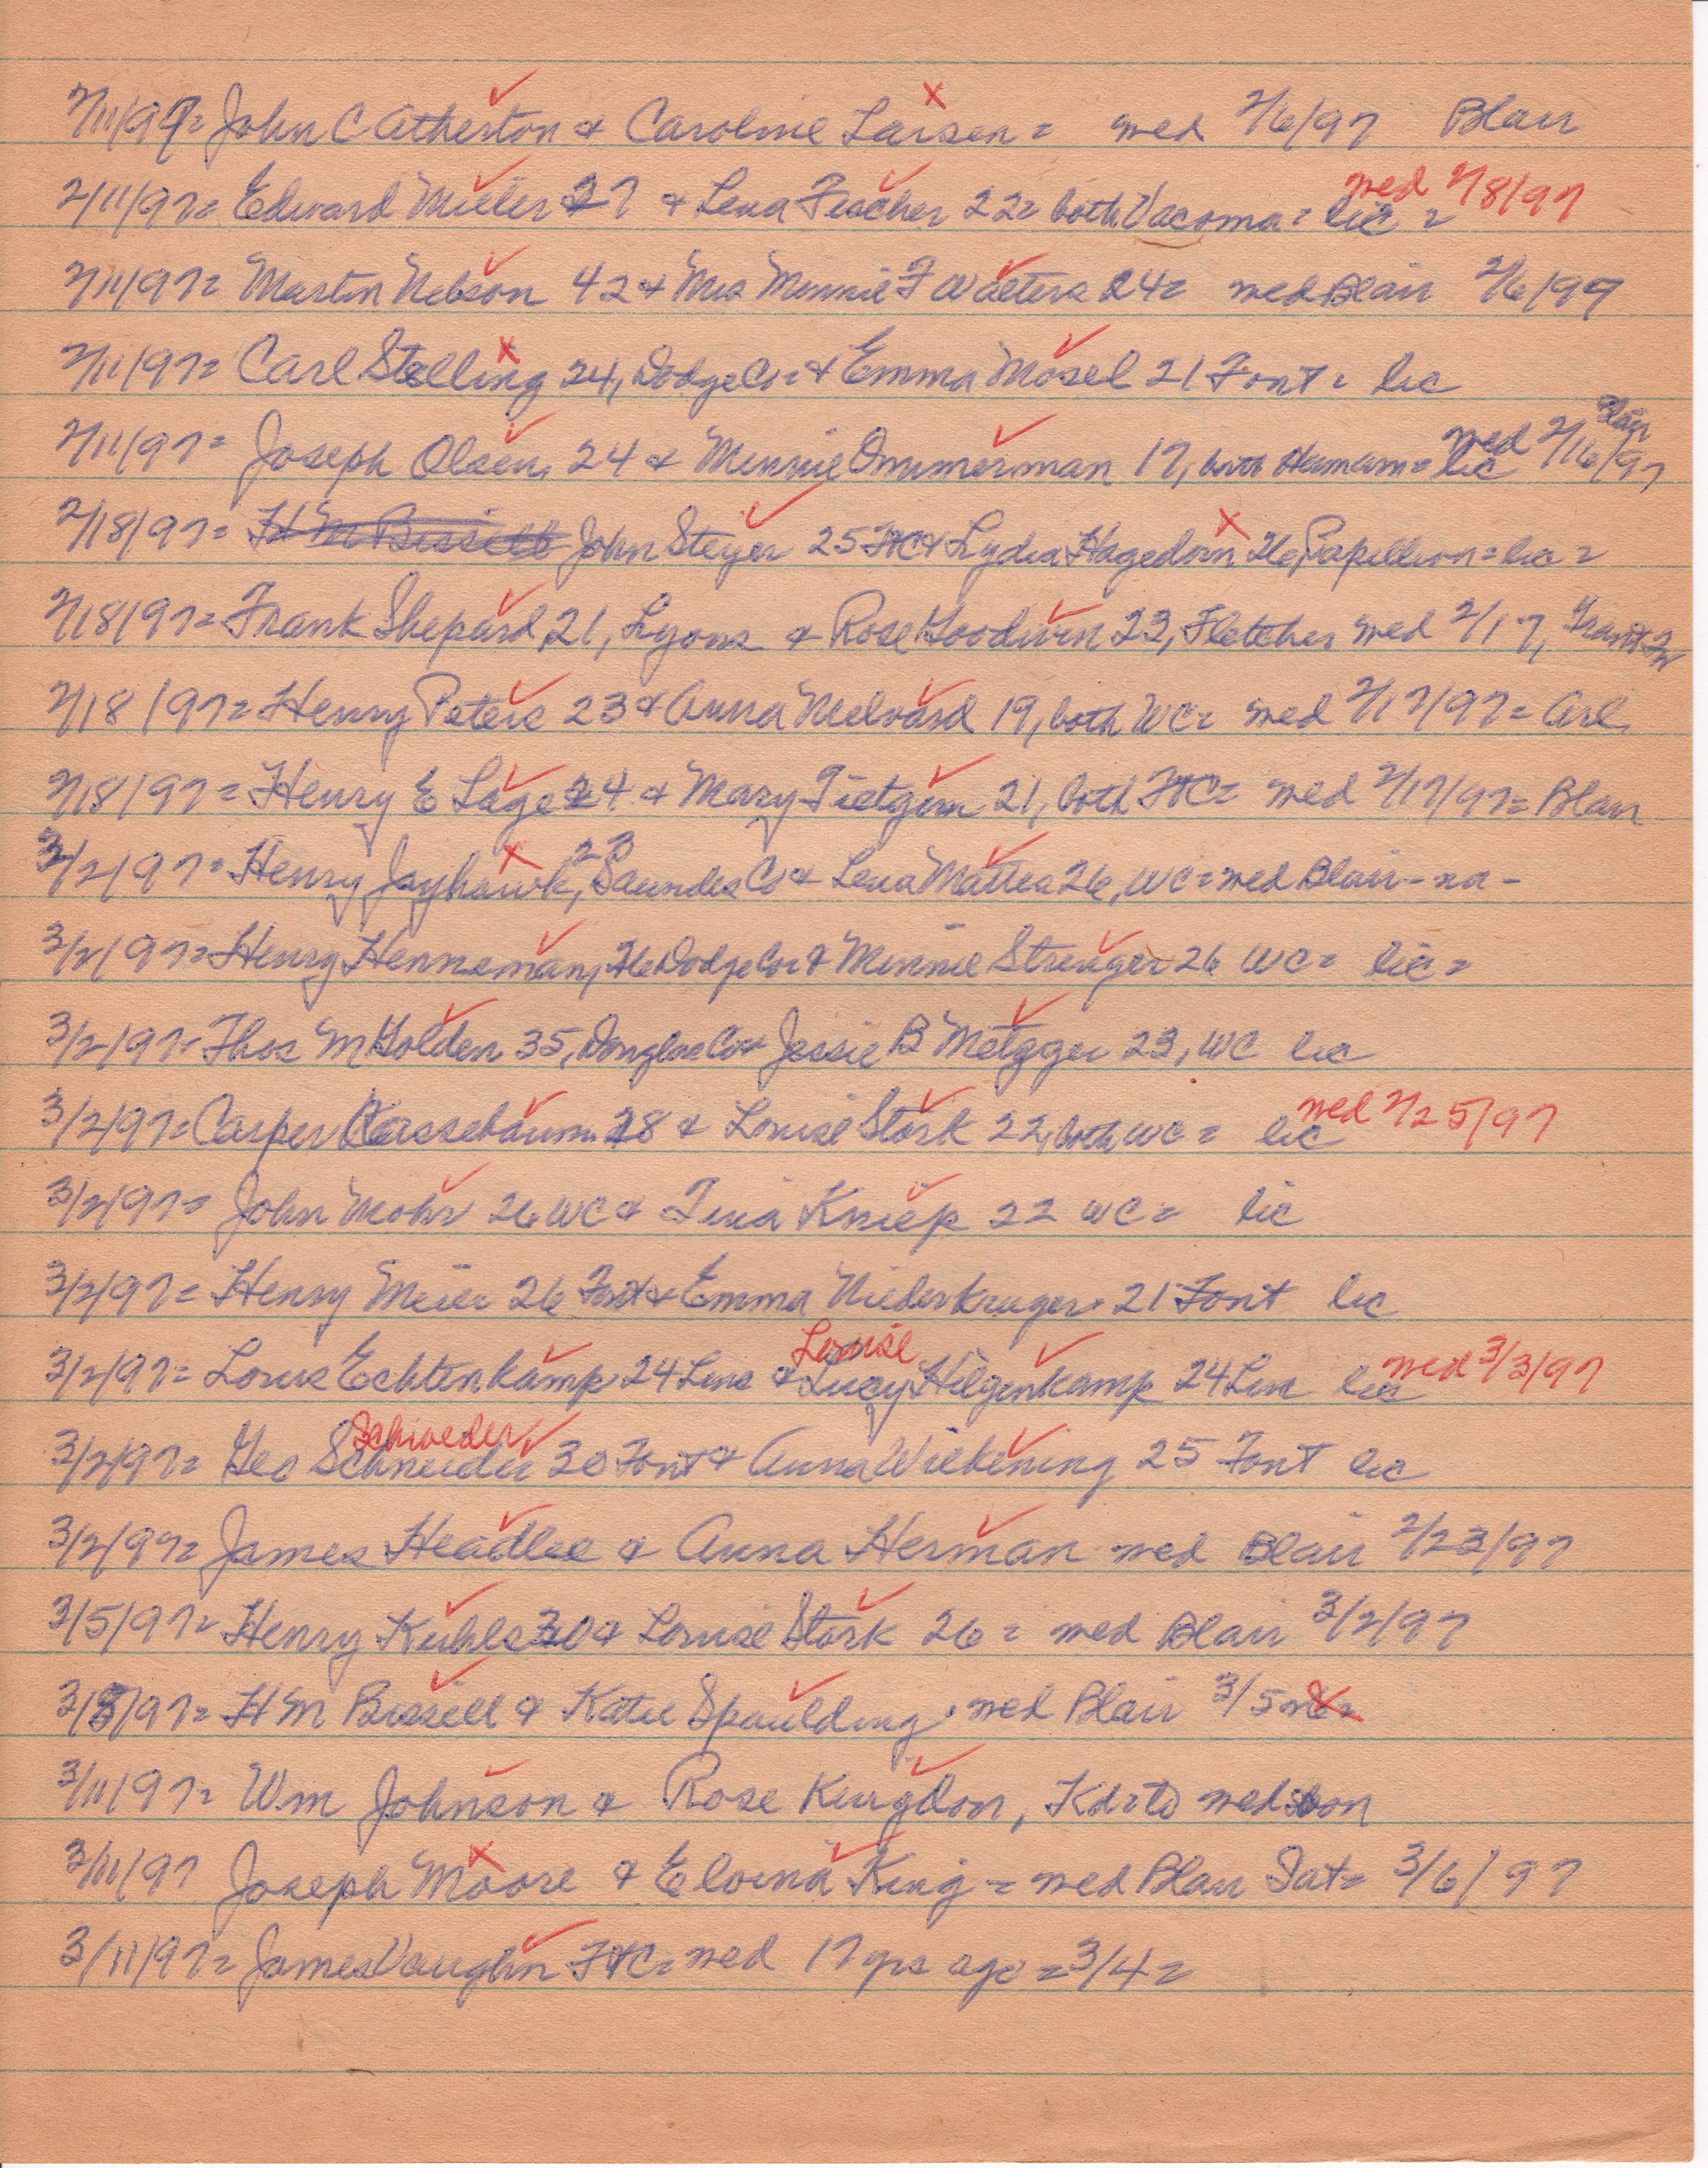 2/11/97= John C Atherton & Caroline Larsen = med 2/6/97 Blair
2/11/97= Edward Miller 27 & Lena Feacher 22= both Vacoma = lic = med 2/8/97
2/11/97= Martin Nelson 42 & Mrs Minnie F Walters 24= med Blair 2/6/97
2/11/97= Carl Stelling 24, Dodge Co= & Emma Mosel 21 Font = lic
2/11/97= Joseph Olsen, 24 & Minnie Ommerman 17, both Hermam= lic med 2/16/97 Blair
2/18/97= John Steyer 25 FTC & Lydia Hagedorn 26, Papillion = lic =
2/18/97= Frank Shepard, 21, Lyons & Rose Goodwin 23, Fletcher med 2/17, Grant Tw
2/18/97= Henry Peters 23 & Anna Melvard 19, both WC= med 2/17/97= Arl.
2/18/97= Henry E Lage 24 & Mary Tietgen 21, both FTC= med 2/17/97= Blair
3/2/97= Henry Jayhawk, 23 Saundes Co & Lena Mattes 26, WC= med Blair - na -
3/2/97= Henry Henneman, 26 Dodge Co= & Minnie Strenger 26 WC= lic =
3/2/97= Thos M Golden 35, Douglas Co & Jessie B Metzger 23, WC lic
3/2/97= Casper Kassebaum 28 & Louise Stork 22, both WC = lic med 2/25/97
3/2/97= John Mohr 26 WC & Tena Kniep 22 WC = lic
3/2/97= Henry Meier 26 Font & Emma Niederkruger 21 Font lic
3/2/97= Louis Echtenkamp 24 Lins & Lucy Louise Hilgenkamp 24 Lin lic med 3/3/97
3/2/97= Geo Schneider Schroeder 30 Font & Anna Wilkening 25 Font lic
3/2/97= James Headlee & Anna Herman med Blair 2/23/97
3/5/97= Henry Kuhls 30 & Louise Stork 26 = med Blair 3/2/97
3/5/97= H M Bissell & Katie Spaulding = med Blair 3/5
3/11/97= Wm Johnson & Rose Kurgdon, Kd=to med soon
3/11/97 Joseph Moore & Elvina King = med Blair Sat= 3/6/97
3/11/97= James Vaughn FTC= med 17 yrs ago = 3/4 =